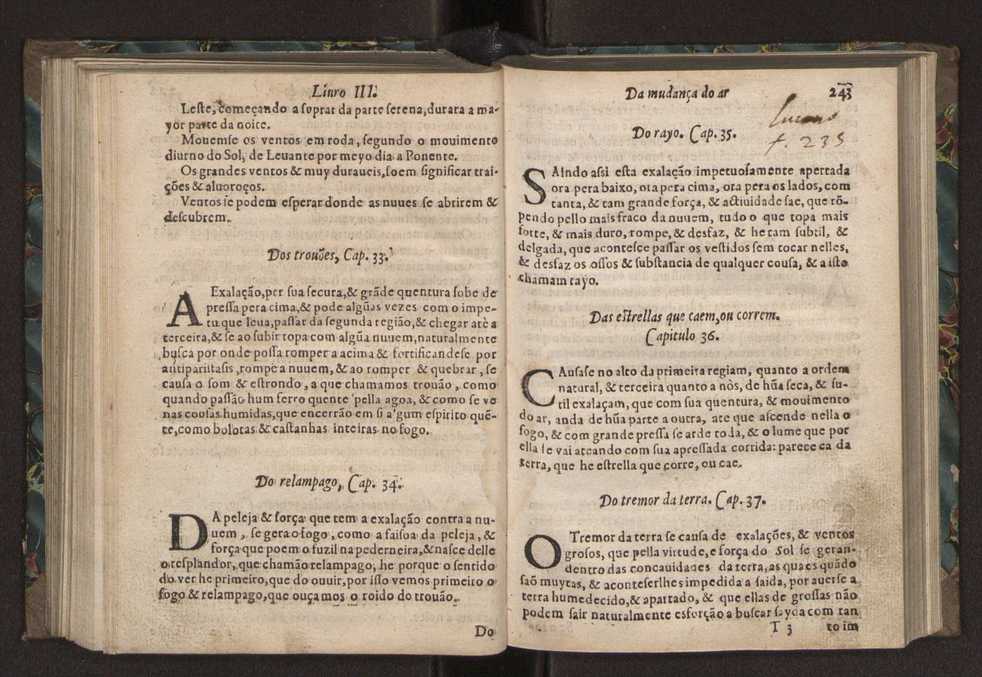 Liuro III.
Leste, começando a soprar da parte serena, durara a ma-
yor parte da noite.
Mouemse os ventos em roda, segundo o mouimento
diurno do Sol, de Leuante por meyo dia a Ponente.
Os grandes ventos & muy duraueis, soem significar trai-
ções & aluoroços.
Ventos se podem esperar donde as nuues se abrirem &
descubrem.
Dos trouões, Cap. 33.
A Exalação, per sua secura, & grãde quentura sobe de
pressa pera cima, & pode algũas vezes com o impe-
tu que leua, passar da segunda região, & chegar atè a
terceira, & se ao subir topa com algũa nuuem, naturalmente
busca por onde possa romper a acima & fortificandese por
antiparistasis, rompe a nuuem, & ao romper & quebrar, se
causa o som & estrondo, a que chamamos trouão, como
quando passão hum ferro quente pella agoa, & como se ve
nas cousas humidas, que encerrão em si algum espirito quẽ-
te, como bolotas & castanhas inteiras no fogo.
Do relampago, Cap. 34.
DA peleja & força que tem a exalação contra a nu-
uem, se gera o fogo, como a faisca da peleja, &
força que poem o fuzil na pederneira, & nasce delle
o resplandor, que chamão relampago, he porque o sentido
do ver he primeiro, que do ouuir, por isso vemos primeiro o
fogo & relampago, que ouçamos o roido do trouão.
Do
Da mudança do ar 243
Lucano
f. 235
Do rayo. Cap. 35.
SAindo assi esta exalação impetuosamente apertada
ora pera baixo, ora pera cima, ora pera os lados, com
tanta, & tam grande força, & actiuidade sae, que rõ-
pendo pello mais fraco da nuuem, tudo o que topa mais
forte, & mais duro, rompe, & desfaz, & he tam subtil, &
delgada, que acontesce passar os vestidos sem tocar nelles,
& desfaz os ossos & substancia de qualquer cousa, & a isto
chamam rayo.
Das estrellas que caem, ou correm.
Capitulo 36.
CAusase no alto da primeira regiam, quanto a ordem
natural, & terceira quanto a nòs, de hũa seca, & su-
til exalaçam, que com sua quentura, & mouimento
do ar, anda de hũa parte a outra, ate que ascende nella o
fogo, & com grande pressa se arde toda, & o lume que por
ella se vai atcando com sua apressada corrida: parece ca da
terra, que he estrella que corre, ou cae.
Do tremor da terra. Cap. 37.
O Tremor da terra se causa de exalações, & ventos
grosos, que pella virtude, e força do Sol se geran-
dentro das concauidades da terra, as quaes quãdo
saõ muytas, & aconteserlhes impedida a saida, por auerse a
terra humedecido, & apartado, & que ellas de grossas não
podem sair naturalmente esforção a buscar sayda com tan
T 3 to im